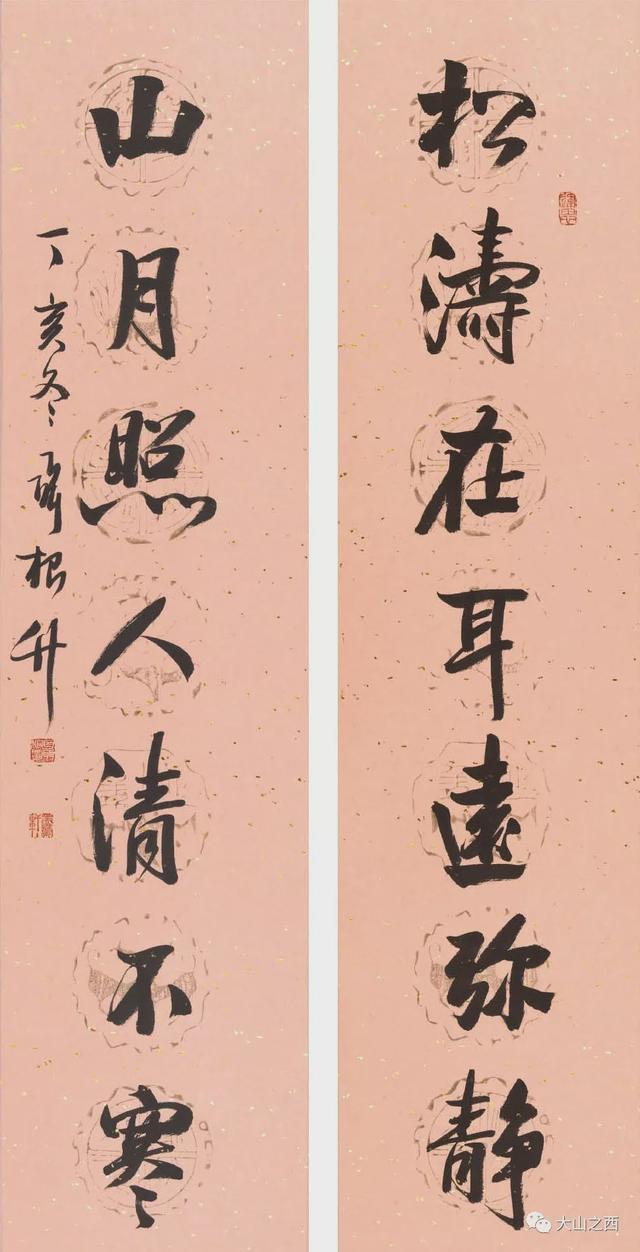 松濤在耳遠弥静
山月照人清不寒
丁亥冬根升
大山之西